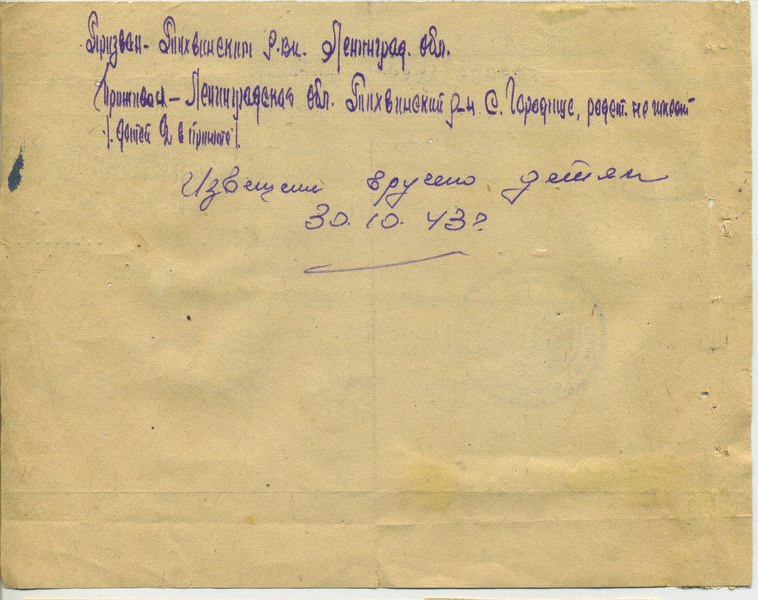 Призван - Тихвинским Р.вк. Ленинград. обл.
Проживал - Ленинградской обл. Тихвинский р-н С. Городище, родст. не имеет
(детей 2 в приюте).
Извещение вручено детям
30.10.43г